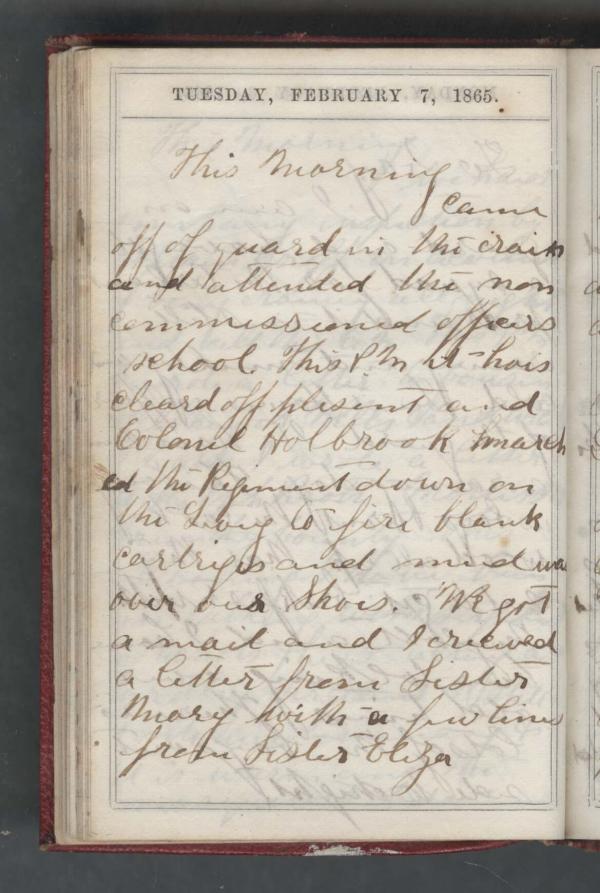 TUESDAY, FEBRUARY 7, 1865.
This Morning
came
off of guard in the rain
and attended the non
commissioned officers
school. This P M it hois
cleard off plesent and
Colonel Holbrook march
ed the Regiment down on
the to fire blank
cartriges and mud wa
over our Shoes. We got
a mail and I recieved
a letter from Sister
Mary with a few lines
from Sister Eliza